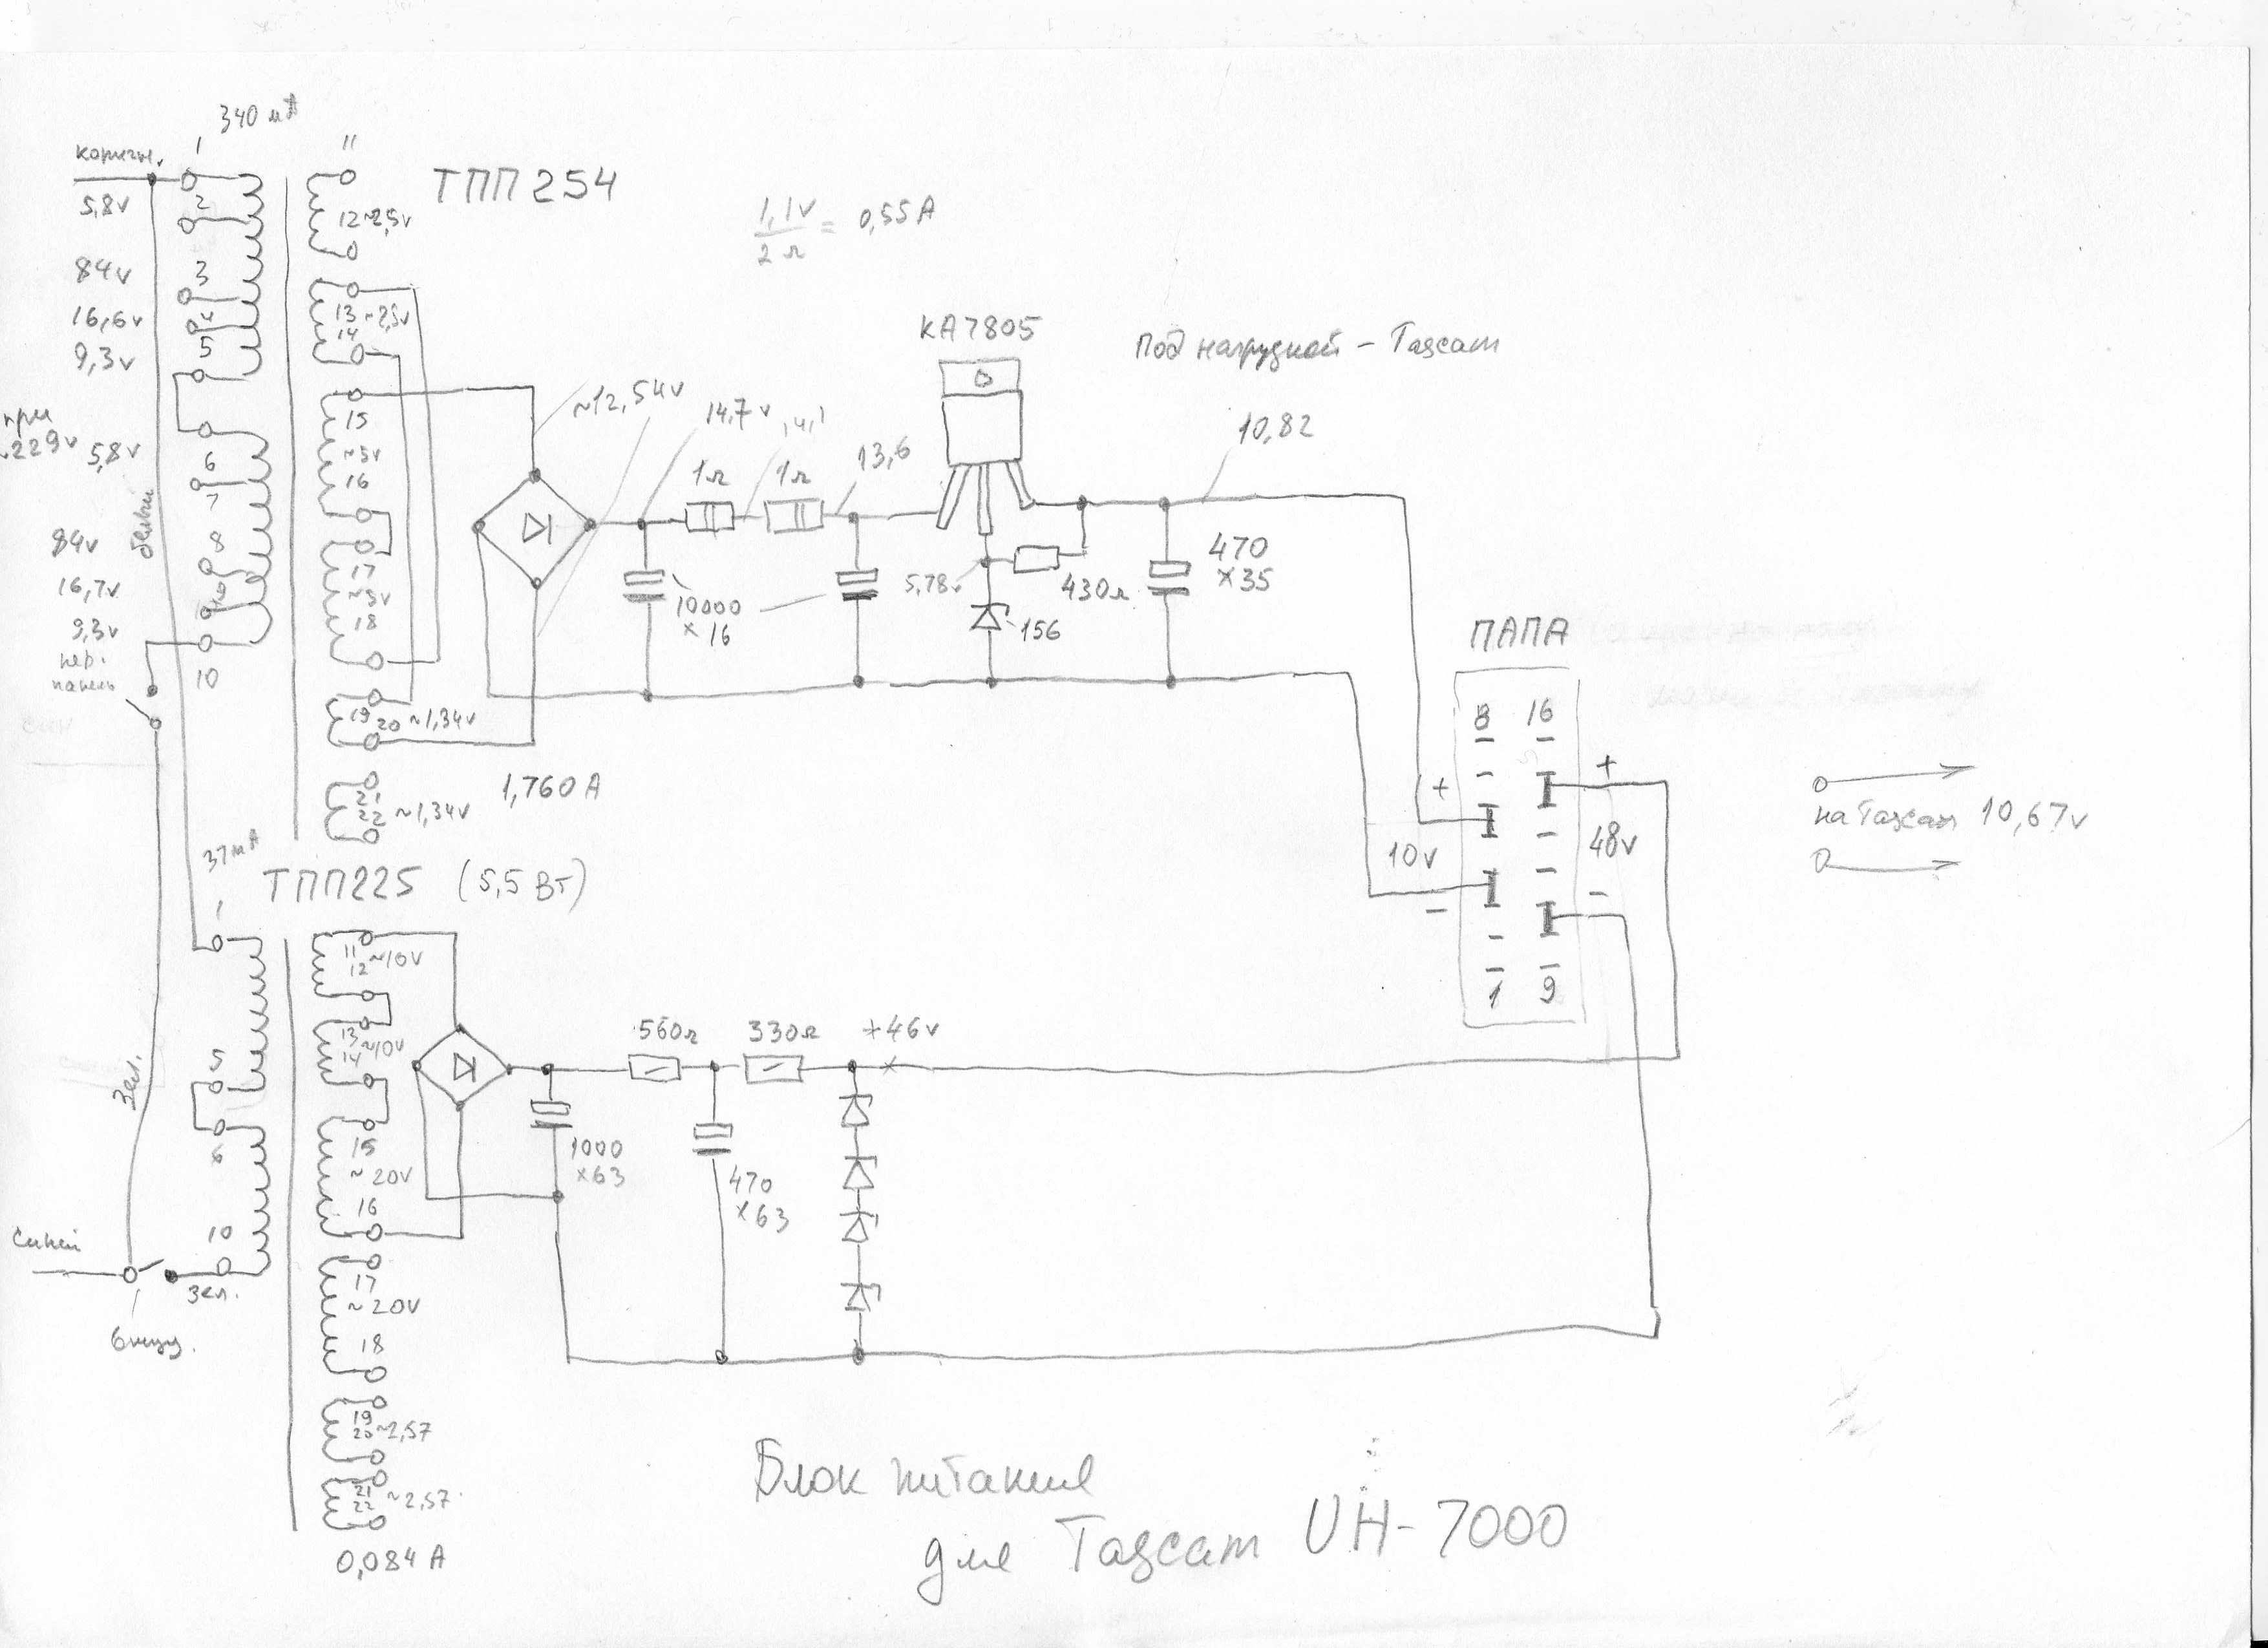 340 мА
коричн.
1
11
5,8v
2
ТПП 254
12 ~2,5v
1,1v
2 Ω
= 0,55 A
84v
3
16,6v
4
13 ~2,5v
14
9,3v
5
KA7805
Под нагрузкой - Tascam
при
~229v
5,8v
6
7
15
~5v
16
~12,54v
14,7v
14,1
1Ω
1Ω
13,6
10,82
белый
84v
8
16,7v
9
17
~5v
18
10000
×16
5,78v
430Ω
156
470
×35
9,3v
пер.
панель
10
19
20 ~1,34v
21
22 ~1,34v
1,760 A
ПАПА
8 16
+
+
10v
48v
-
-
1 9
на Tascam 10,67v
37 мА
ТПП225 (5,5 Вт)
1
11
12 ~10v
13
14 ~10v
560Ω
330Ω
+46v
5
6
зел.
15
~20v
16
1000
×63
470
×63
10
синий
зел.
внизу.
17
~20v
18
19
20 ~2,57
21
22 ~2,57
0,084 A
Блок питания
для Tascam UH-7000